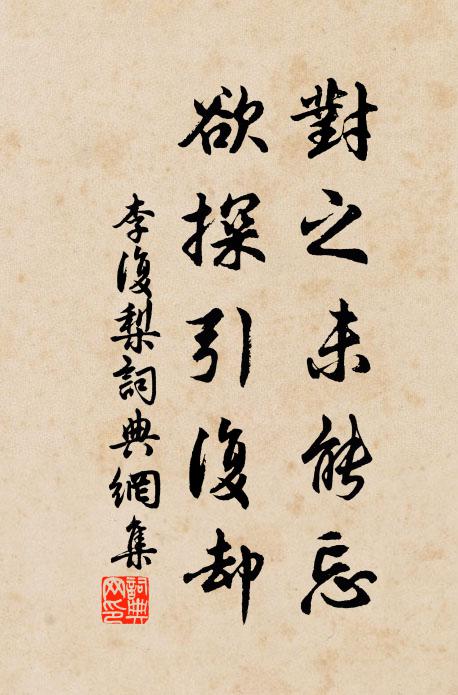 對之未能忘
欲探引復却
李復梨詞典網集
詞典
网印